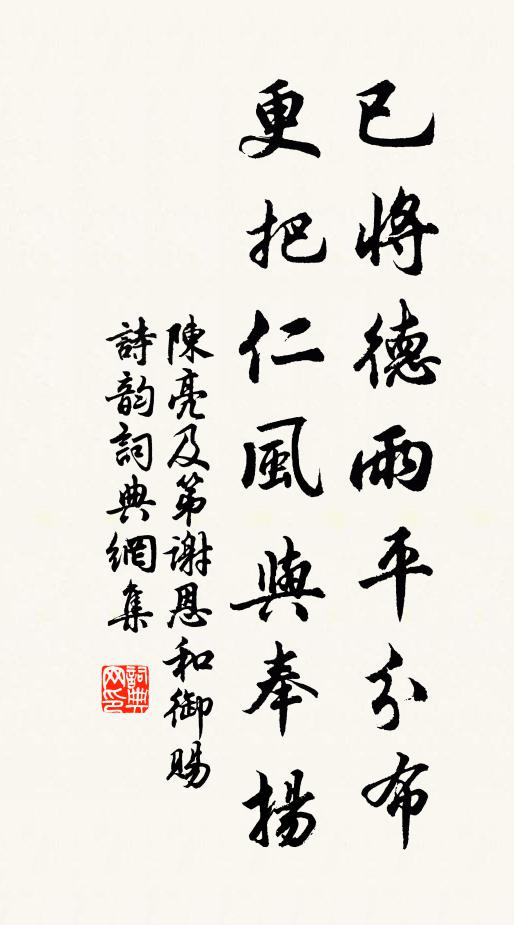 已將德雨平分布
更把仁風與奉揚
陳亮及第謝恩和御賜
詩韵詞典網集
詞典
网印